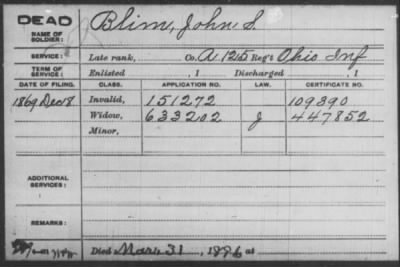 DEAD
NAME OF SOLDIER: Blim, John S.
SERVICE: Late rank, Co. A 125 Reg't Ohio Inf
TERM OF SERVICE: Enlisted , 1 Discharged , 1
DATE OF FILING. CLASS. APPLICATION NO. LAW. CERTIFICATE NO.
1869 Dec 8 Invalid, 151272 109390
Widow, 633202 J 447852
Minor,
ADDITIONAL SERVICES:
REMARKS:
Died Mar. 31, 1896 at